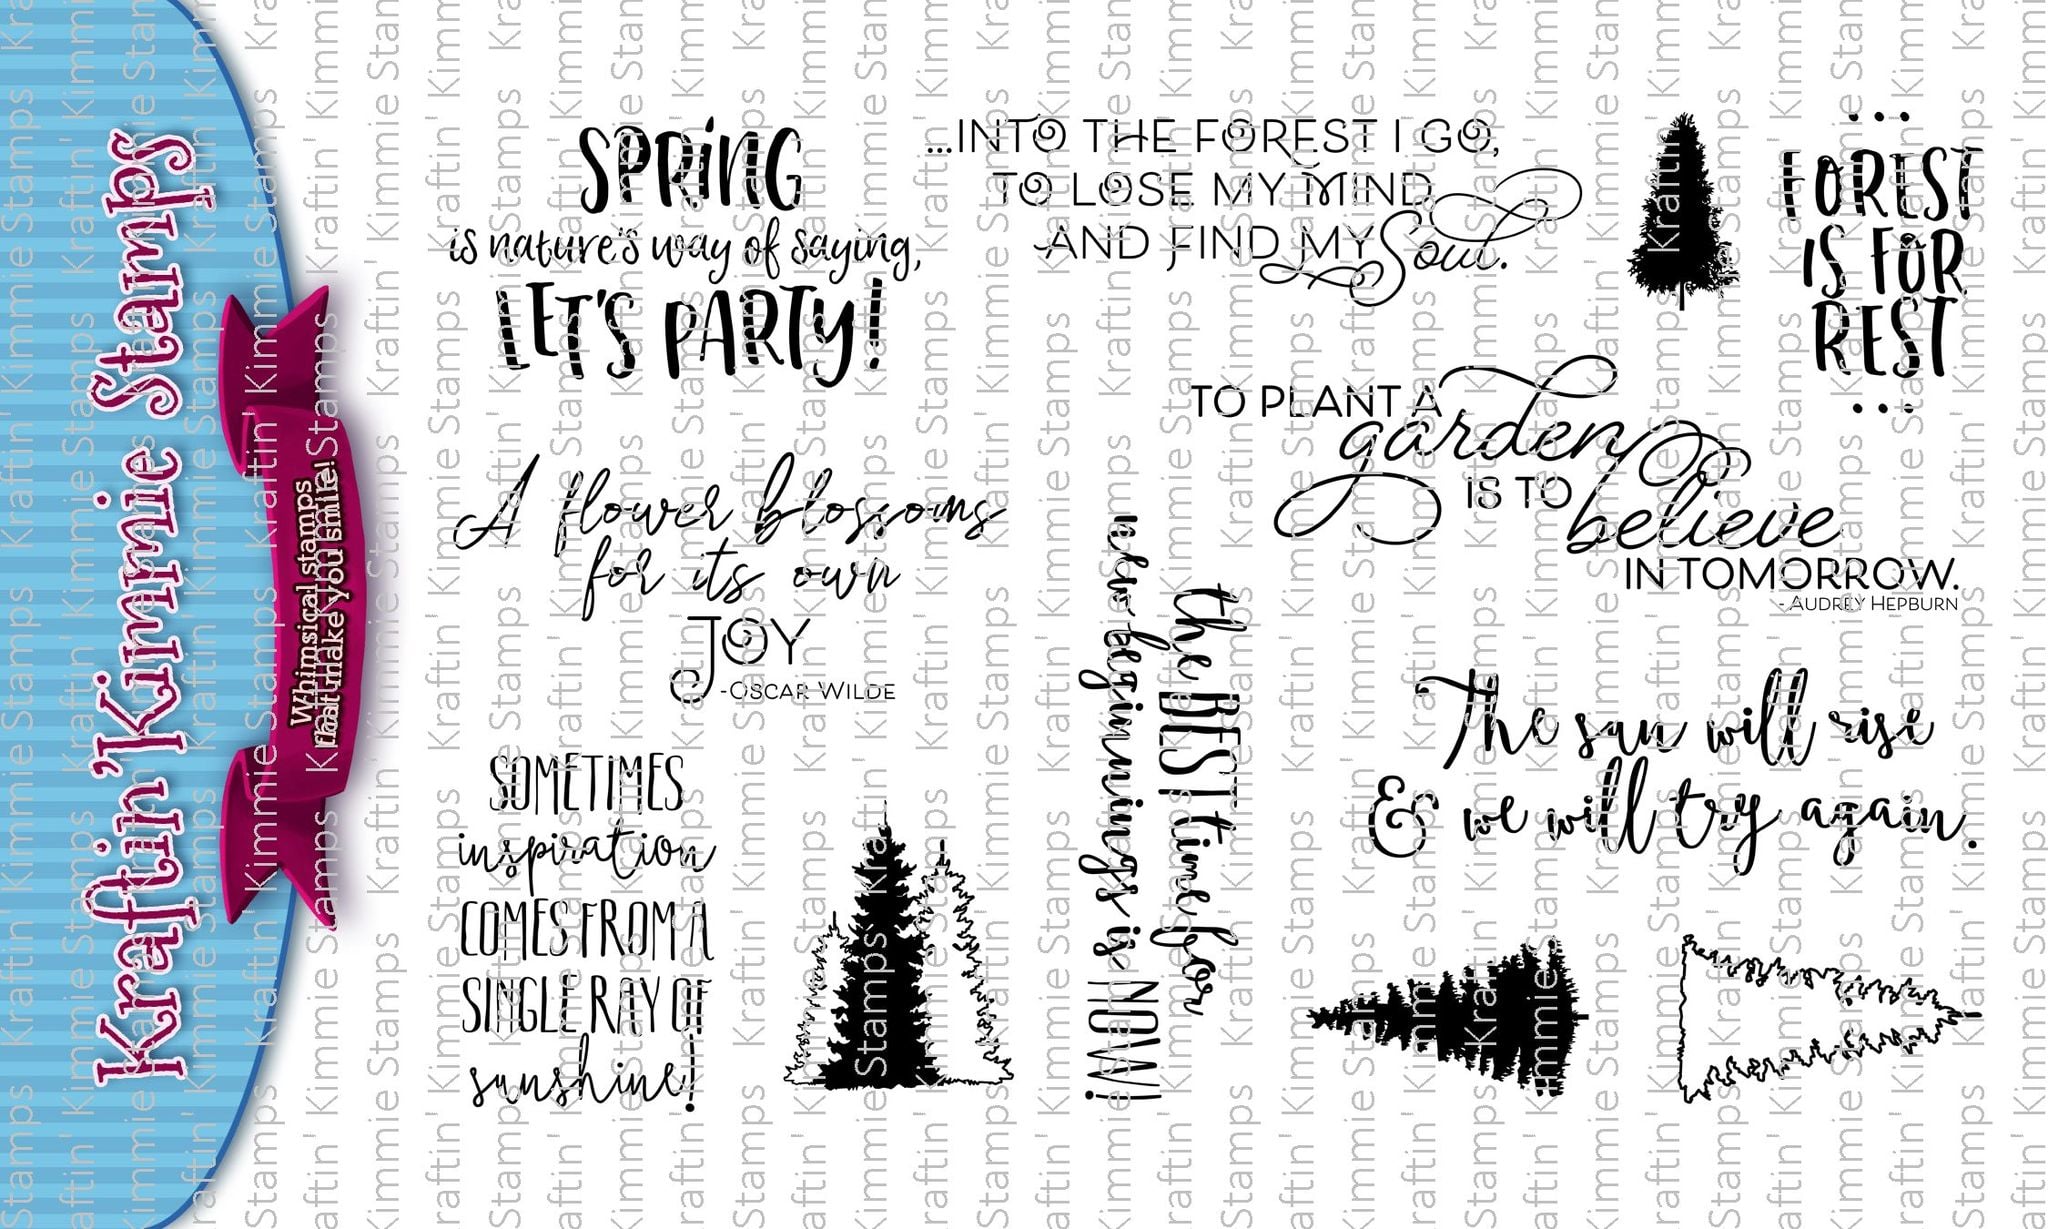 Kraftin' Kimmie Stamps
Whimsical stamps
that make you smile!
SPRING
is nature's way of saying,
LET'S PARTY!
...INTO THE FOREST I GO,
TO LOSE MY MIND
AND FIND MY Soul.
...
FOREST
IS FOR
REST
...
TO PLANT A
garden
IS TO
believe
IN TOMORROW.
- AUDREY HEPBURN
A flower blossoms
for its own
JOY
-OSCAR WILDE
the BEST time for
new beginnings is NOW!
The sun will rise
& we will try again.
SOMETIMES
inspiration
COMES FROM A
SINGLE RAY OF
sunshine!
Kraftin' Kimmie Stamps